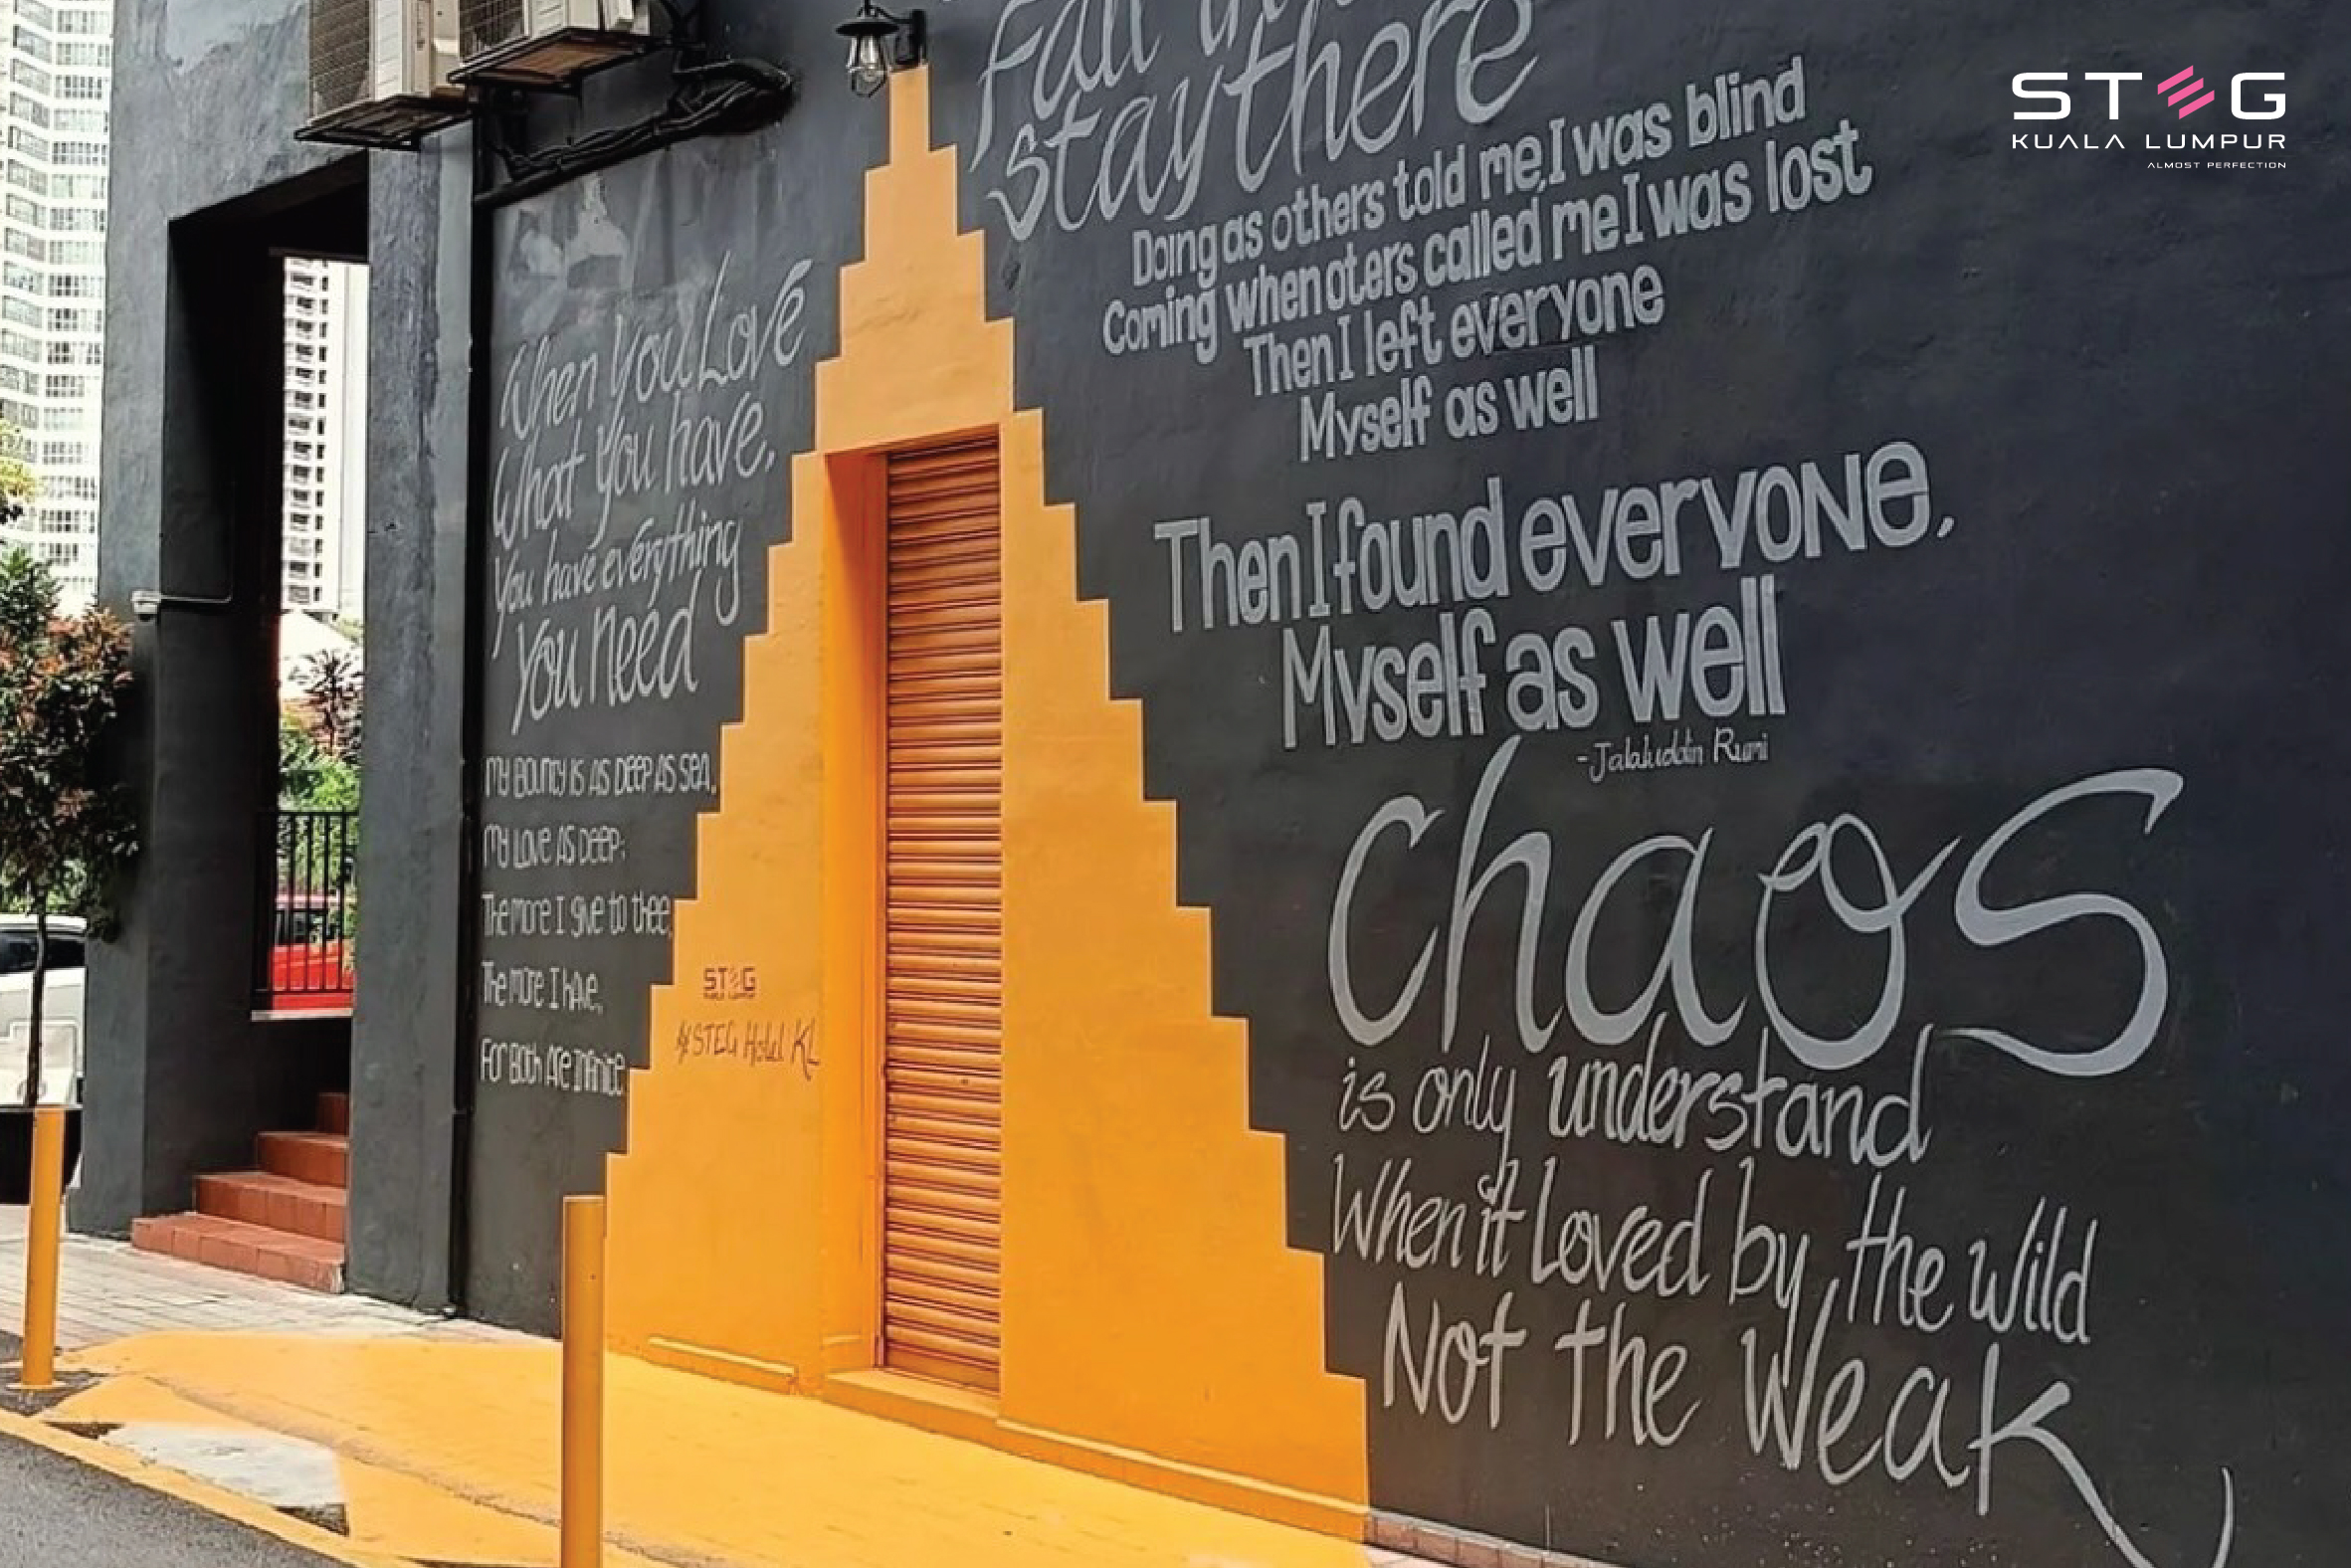 Fall
stay there
Doing as others told me, I was blind
Coming when oters called me I was lost
Then I left everyone
Myself as well
Then I found everyone,
Myself as well
-Jalaluddin Rumi
Chaos
is only understand
When it Loved by the Wild
Not the Weak
When You Love
What You have,
You have everything
You Need
My Bounty is as Deep as Sea,
My Love as Deep;
The more I give to thee,
The more I have,
For Both Are Infinite
STEG
KUALA LUMPUR
#STEG Hotel KL
STEG
KUALA LUMPUR
ALMOST PERFECTION